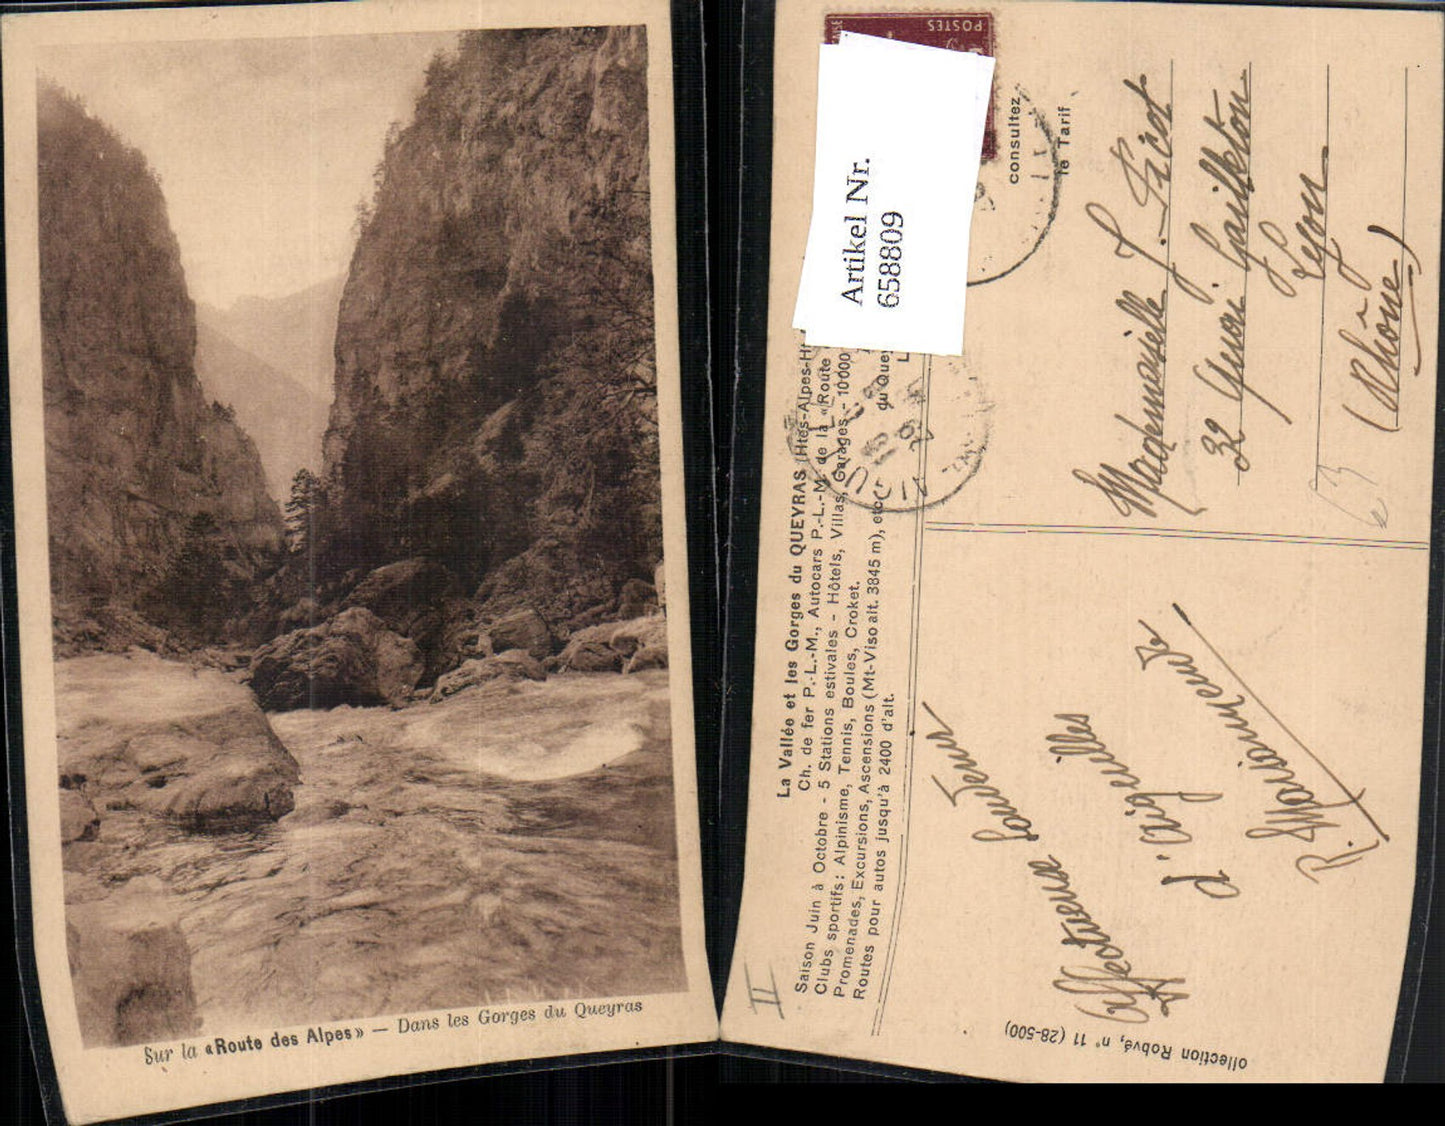 Sur la «Route des Alpes» — Dans les Gorges du Queyras
POSTES
Artikel Nr.
658809
consultez
le Tarif
La Vallée et les Gorges du QUEYRAS (Htes-Alpes-Ht
Ch. de fer P.-L.-M., Autocars P.-L.-M. de la «Route
Saison Juin à Octobre - 5 Stations estivales - Hôtels, Villas, Garages - 10000
Clubs sportifs: Alpinisme, Tennis, Boules, Croket.
Promenades, Excursions, Ascensions (Mt-Viso alt. 3845 m), etc
du Que
Routes pour autos jusqu'à 2400 d'alt.
Mademoiselle J.
32 Quai Gailleton
Lyon
(Rhône)
63
Affectueux
d'Aiguilles
R.
II
ollection Robvé, n° 11 (28-500)